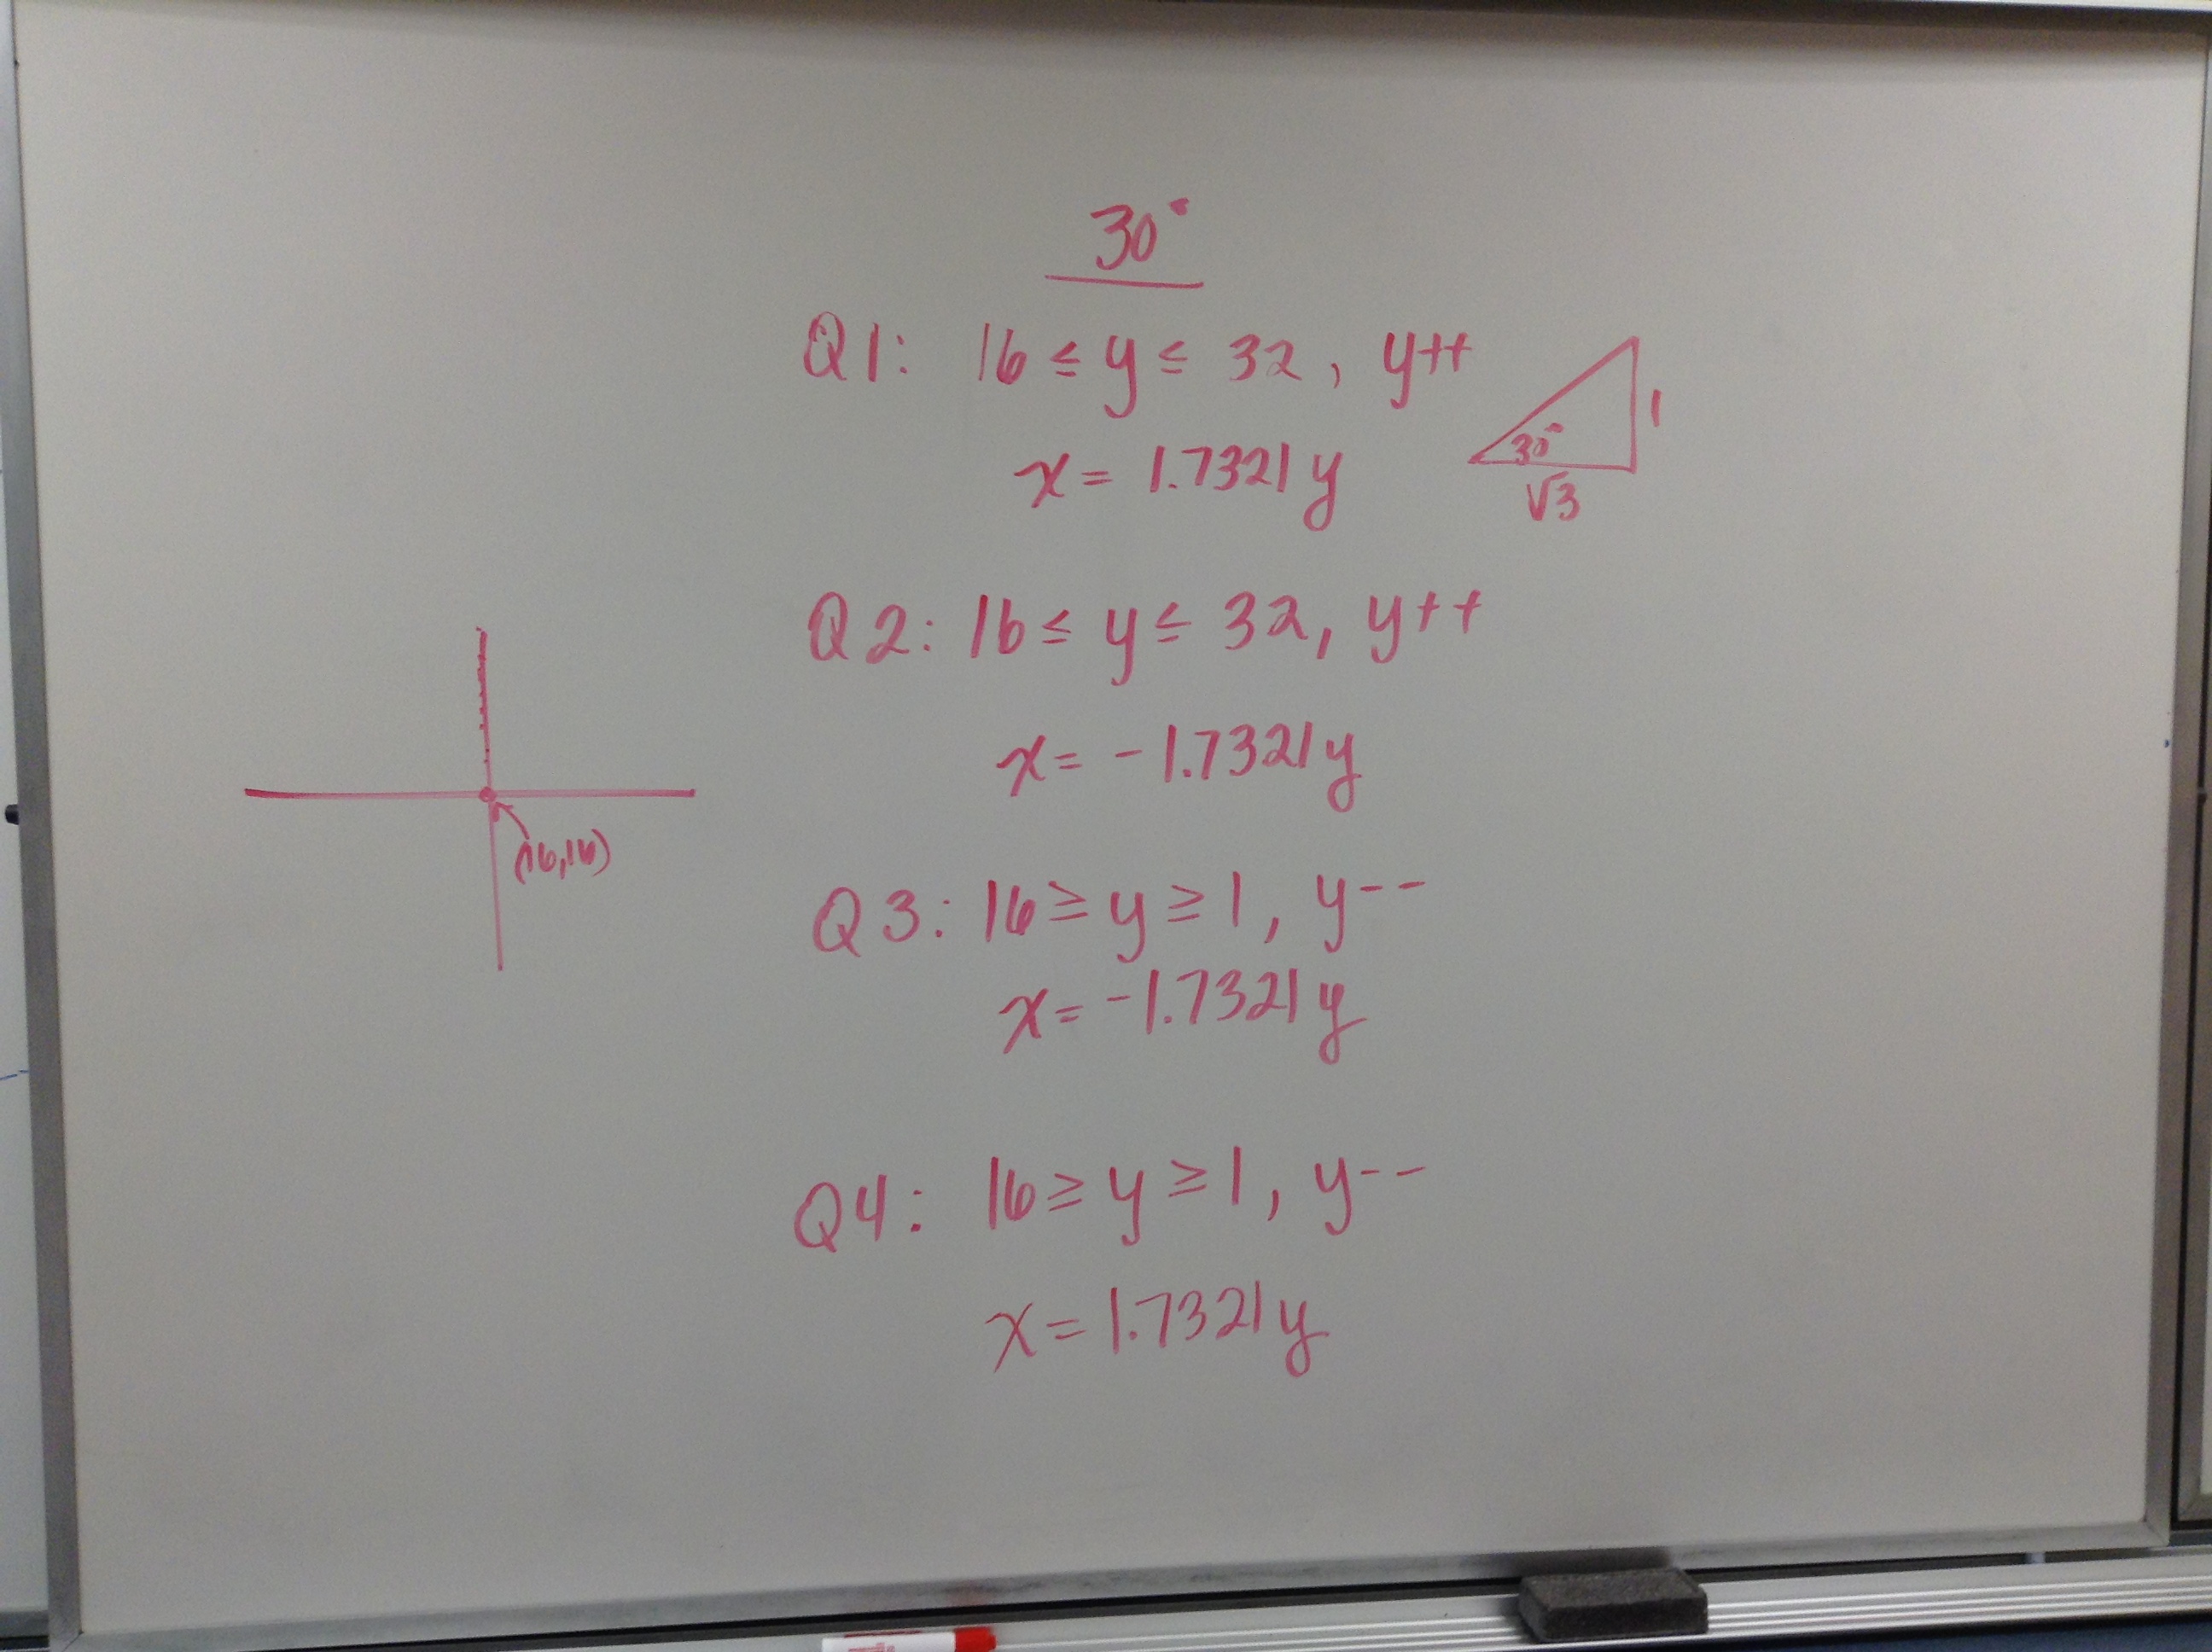 30°
Q1: 16 ≤ y ≤ 32, y++
x = 1.7321y
30°
1
√3
Q2: 16 ≤ y ≤ 32, y++
x = -1.7321y
(16,16)
Q3: 16 ≥ y ≥ 1, y--
x = -1.7321y
Q4: 16 ≥ y ≥ 1, y--
x = 1.7321y